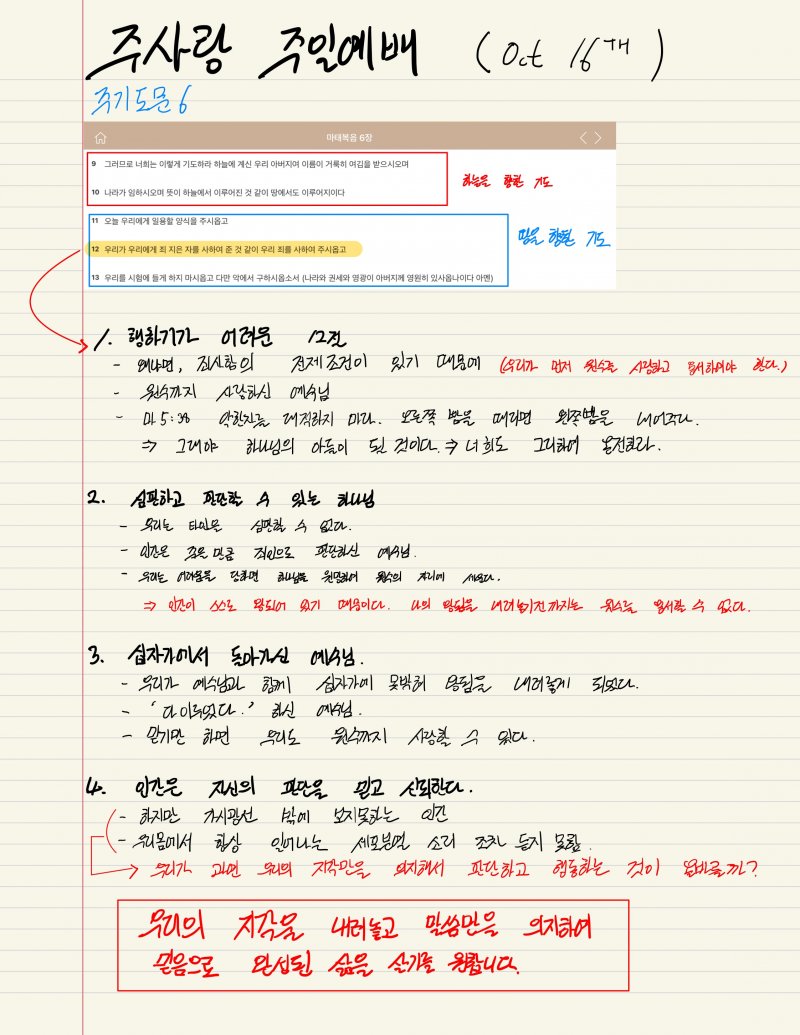 주사랑 주일예배 (Oct 16th)
주기도문 6
마태복음 6장
9 그러므로 너희는 이렇게 기도하라 하늘에 계신 우리 아버지여 이름이 거룩히 여김을 받으시오며
10 나라가 임하시오며 뜻이 하늘에서 이루어진 것 같이 땅에서도 이루어지이다
하늘을 향한 기도
11 오늘 우리에게 일용할 양식을 주시옵고
12 우리가 우리에게 죄 지은 자를 사하여 준 것 같이 우리 죄를 사하여 주시옵고
13 우리를 시험에 들게 하지 마시옵고 다만 악에서 구하시옵소서 (나라와 권세와 영광이 아버지께 영원히 있사옵나이다 아멘)
땅을 향한 기도
1. 행하기가 어려운 구절
- 왜냐면, 죄사함의 전제조건이 있기 때문에 (우리가 먼저 원수를 사랑하고 용서하여야 한다.)
- 원수까지 사랑하신 예수님
- 마 5:38 악한자를 대적하지 마라. 오른쪽 뺨을 때리면 왼쪽뺨을 내어주라.
⇒ 그래야 하나님의 아들이 될 것이다. ⇒ 너희도 그리하여 온전하라.
2. 심판하고 판단할 수 있는 하나님
- 우리는 타인은 심판할 수 없다.
- 인간은 죽은 만큼 죄인으로 판단하신 예수님.
- 우리는 어려움을 당하면 하나님을 원망하여 원수의 자리에 세운다.
⇒ 인간이 스스로 왕되어 있기 때문이다. 나의 왕됨을 내려놓기전까지는 원수를 용서할 수 없다.
3. 십자가에서 돌아가신 예수님.
- 우리가 예수님과 함께 십자가에 못박혀 왕됨을 내려놓게 되었다.
- '다 이루었다.' 하신 예수님.
- 믿기만 하면 우리도 원수까지 사랑할 수 있다.
4. 인간은 자신의 판단을 믿고 신뢰한다.
- 하지만 가시광선 밖에 보지못하는 인간
- 우리몸에서 항상 일어나는 세포분열 소리 조차 듣지 못함.
우리가 과연 우리의 지각만을 의지해서 판단하고 행동하는 것이 올바를까?
우리의 지각을 내려놓고 말씀만을 의지하여
믿음으로 완성된 삶을 살기를 원합니다.